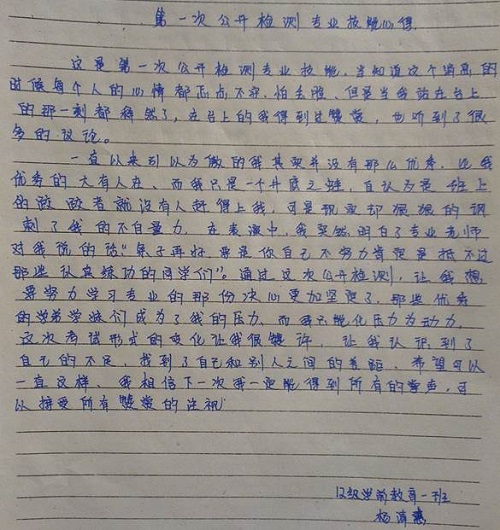 第一次公开检测专业技能心得
这是第一次公开检测专业技能,当知道这个消息的
时候每个人的心情都忐忑不安,怕去啦,但是当我站在台上
的那一刻都释然了,在台上的我得到过赞赏,也听到了很
多的议论。
一直以来引以为傲的我其实并没有那么优秀,比我
优秀的大有人在、而我只是一个井底之蛙,自认为是班上
的佼佼者就没有人赶得上我,可是现实却狠狠的讽
刺了我的不自量力,在表演中,我突然明白了专业老师
对我说的话:"条子再好,要是你自己不努力肯定是抵不过
那些认真练功的同学们"。通过这次公开检测,让我想
要努力学习专业的那份决心更加坚定了,那些优秀
的学弟学妹们成为了我的压力,而我只能化压力为动力,
这次考试形式的变化让我很赞许,让我认识到了
自己的不足,找到了自己和别人之间的差距、希望可以
一直这样、我相信下一次我一定能得到所有的掌声,可
以接受所有赞赏的注视
12级学前教育一班
杨